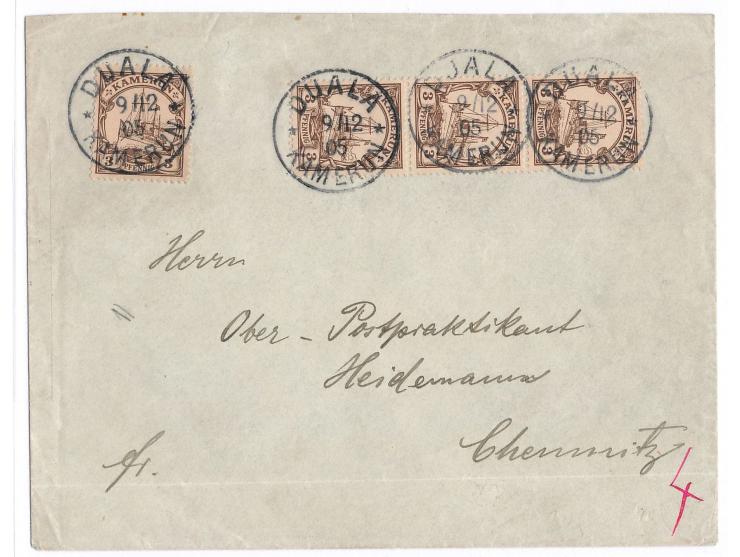 DUALA
9/12
05
* KAMERUN *
KAMERUN
3 PFENNIG 3
DUALA
9/12
05
* KAMERUN *
KAMERUN
3 PFENNIG 3
DUALA
9/12
05
KAMERUN
KAMERUN
3 PFENNIG 3
DUALA
9/12
05
KAMERUN
KAMERUN
3 PFENNIG 3
Herrn
Ober - Postpraktikant
Heidemann
Chemnitz
fr.
4